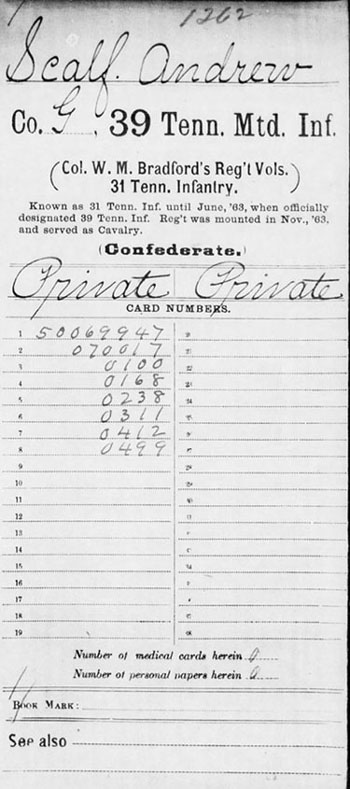 1262
Scalf. Andrew
Co. G, 39 Tenn. Mtd. Inf.
(Col. W. M. Bradford's Reg't Vols.
31 Tenn. Infantry.)
Known as 31 Tenn. Inf. until June, '63, when officially
designated 39 Tenn. Inf. Reg't was mounted in Nov., '63,
and served as Cavalry.
(Confederate.)
Private Private
CARD NUMBERS.
1 50069947
2 070017
3 0100
4 0168
5 0238
6 0311
7 0412
8 0499
9
10
11
12
13
14
15
16
17
18
19
Number of medical cards herein 0
Number of personal papers herein 0
BOOK MARK:
See also